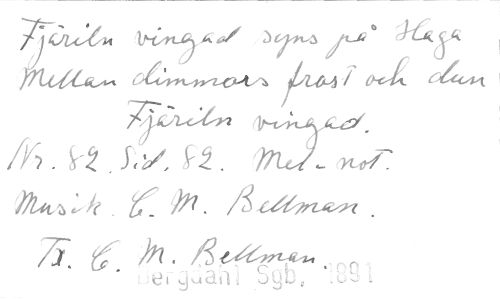 Fjäriln vingad syns på Haga
Mellan dimmors frost och dun
Fjäriln vingad.
Nr. 82 Sid. 82. Mel-not.
Musik C. M. Bellman.
Tx. C. M. Bellman.
Bergdahl Sgb. 1891